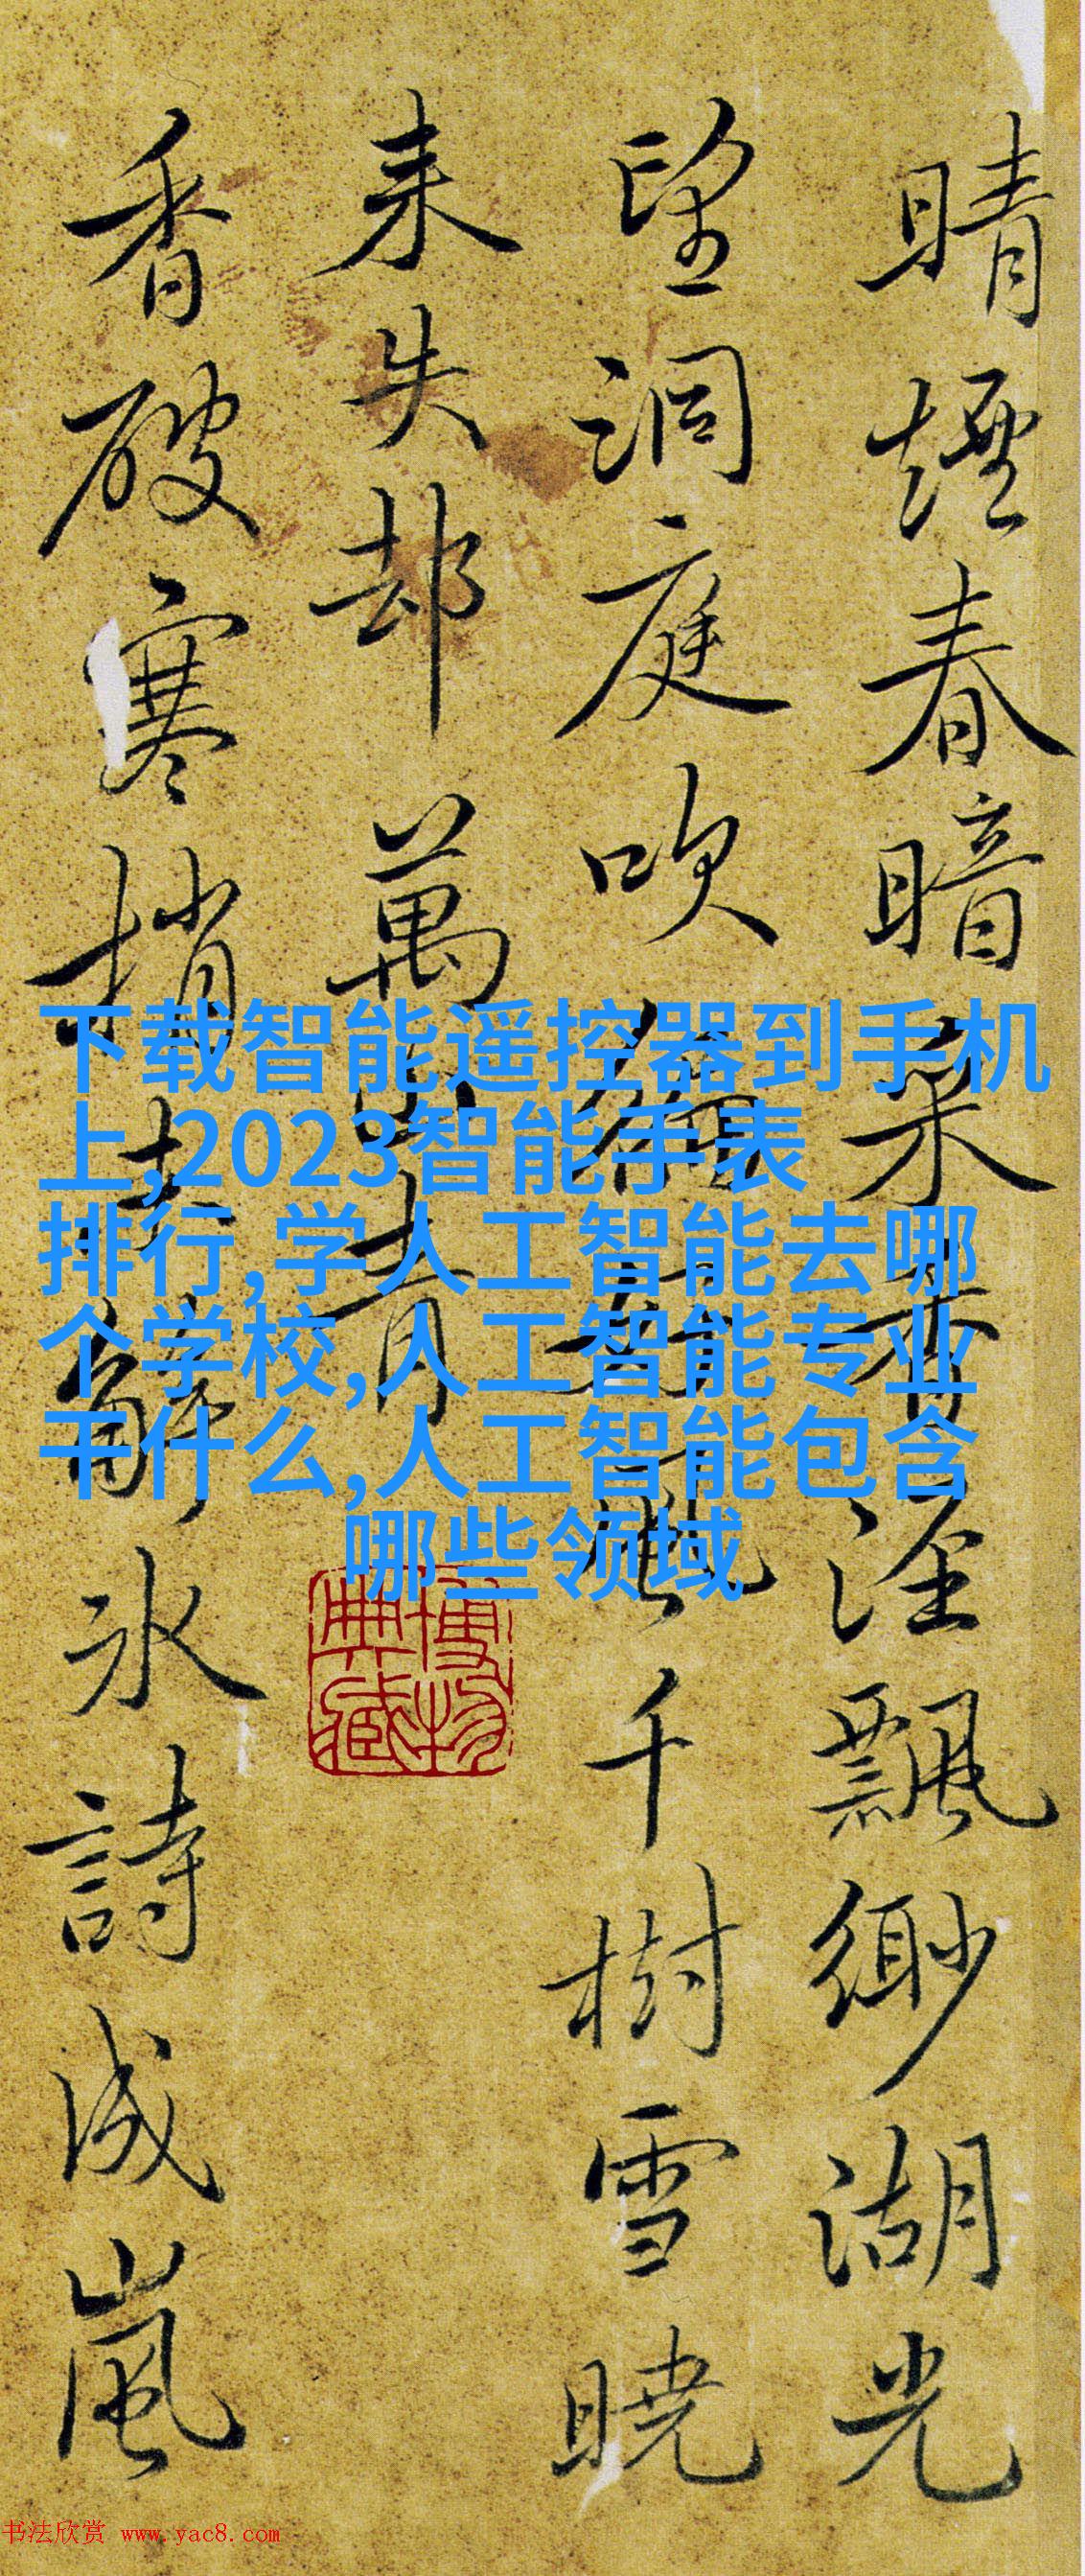 晴煙春暗采香涇飄緲湖光
望洞庭吹
千樹雪曉
来失却萬
青
香破寒梢
解冰詩成嵐
下载智能遥控器到手机
上,2023智能手表
排行,学人工智能去哪
个学校,人工智能专业
干什么,人工智能包含
哪些领域
博物
典藏
书法欣赏 www.yac8.com